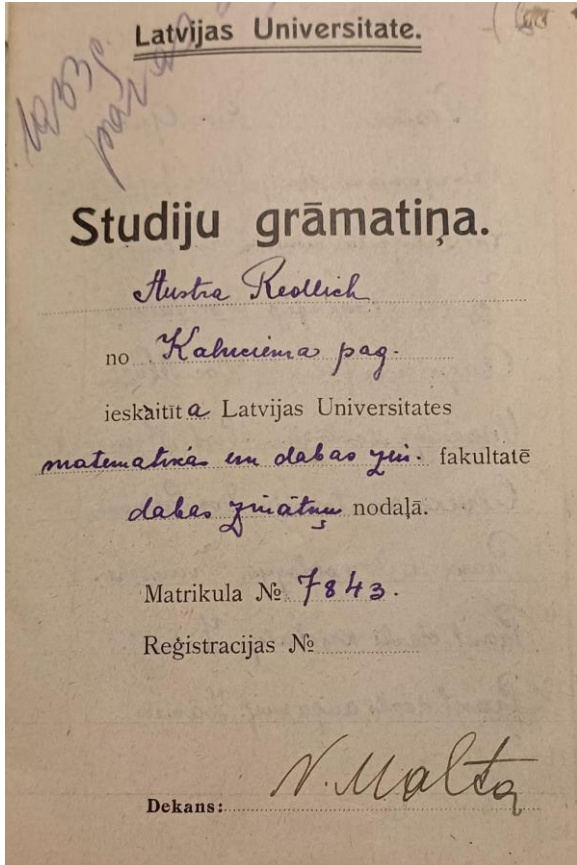 Latvijas Universitate.
Studiju grāmatiņa.
Austra Redlich
no Kalnciema pag.
ieskaitīta Latvijas Universitates
matematikas un dabas zin. fakultatē
dabas zinātņu nodaļā.
Matrikula № 7843.
Reģistracijas №
N. Malta
Dekans: